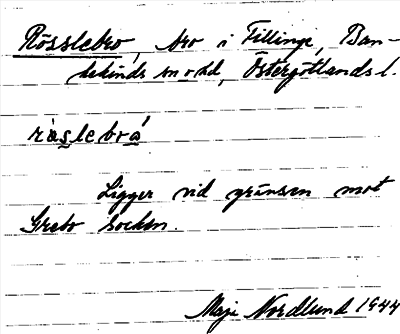 Rösslebro, bro i Fillinge, Ban-
kekinds sn o hd, Östergötlands l.
ràslebrá
Ligger vid gränsen mot
Grebo socken.
Maja Nordlund 1944